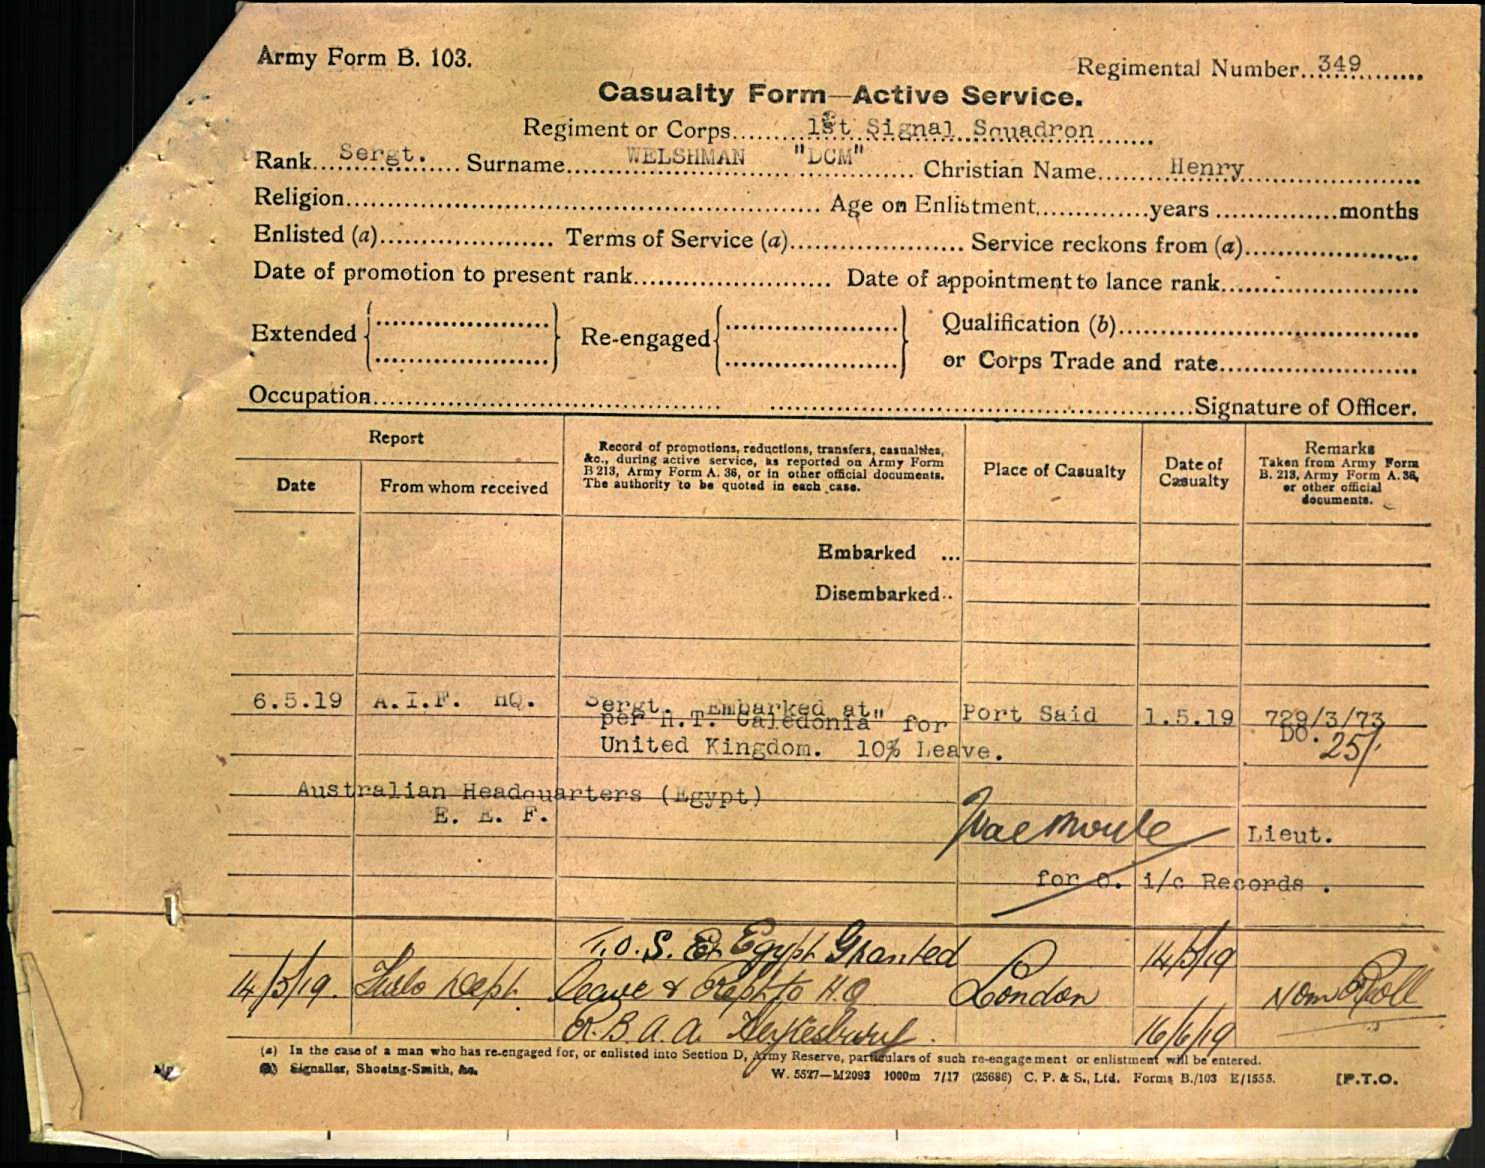 Army Form B. 103.
Regimental Number..349........
Casualty Form—Active Service.
Regiment or Corps.........1st Signal Squadron.......
Rank...Sergt........ Surname.......WELSHMAN "DCM"....... Christian Name.......Henry.......
Religion....... Age on Enlistment.......years.......months
Enlisted (a)....... Terms of Service (a)....... Service reckons from (a).......
Date of promotion to present rank....... Date of appointment to lance rank.......
Extended Re-engaged Qualification (b).......
or Corps Trade and rate.......
Occupation....... .......Signature of Officer.
Report
Date
From whom received
Record of promotions, reductions, transfers, casualties,
&c., during active service, as reported on Army Form
B 213, Army Form A. 36, or in other official documents.
The authority to be quoted in each case.
Place of Casualty
Date of
Casualty
Remarks
Taken from Army Form
B. 213, Army Form A. 36,
or other official
documents.
Embarked ...
Disembarked..
6.5.19 A.I.F. HQ. Sergt. Embarked at
per H.T. "Caledonia" for Port Said 1.5.19 729/3/73
United Kingdom. 10% Leave. DO. 25/.
Australian Headquarters (Egypt)
E. E. F.
Lieut.
for O. i/c Records.
T.O.S. Ex Egypt Granted 14/5/19
14/5/19. Furlo Dept. leave & Rept to H.Q London Nom Roll
16/6/19
(a) In the case of a man who has re-engaged for, or enlisted into Section D, Army Reserve, particulars of such re-engagement or enlistment will be entered.
(b) Signaller, Shoeing-Smith, &c.
W. 5527—M2093 1000m 7/17 (25686) C. P. & S., Ltd. Forms B./103 E/1555.
[P.T.O.